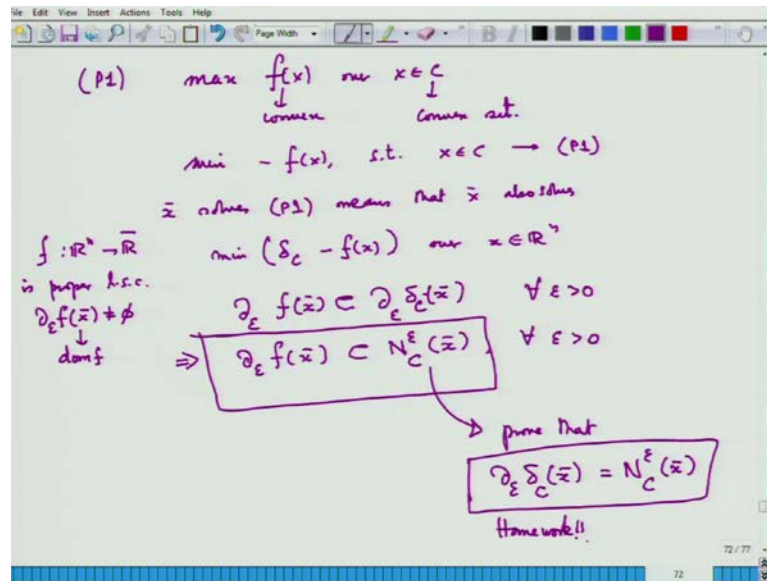 File Edit View Insert Actions Tools Help
Page Width
B I
(P1) max f(x) over x ∈ C
↓ convex ↓ convex set.
min - f(x), s.t. x ∈ C → (P1)
x̄ solves (P1) means that x̄ also solves
min (δ_C - f(x)) over x ∈ ℝⁿ
f : ℝⁿ → ℝ̄
is proper l.s.c.
∂_ε f(x̄) ≠ φ
↓
dom f
∂_ε f(x̄) ⊂ ∂_ε δ_C(x̄) ∀ ε > 0
⇒ ∂_ε f(x̄) ⊂ N_C^ε(x̄) ∀ ε > 0
prove that
∂_ε δ_C(x̄) = N_C^ε(x̄)
Homework!!
72 / 77
72